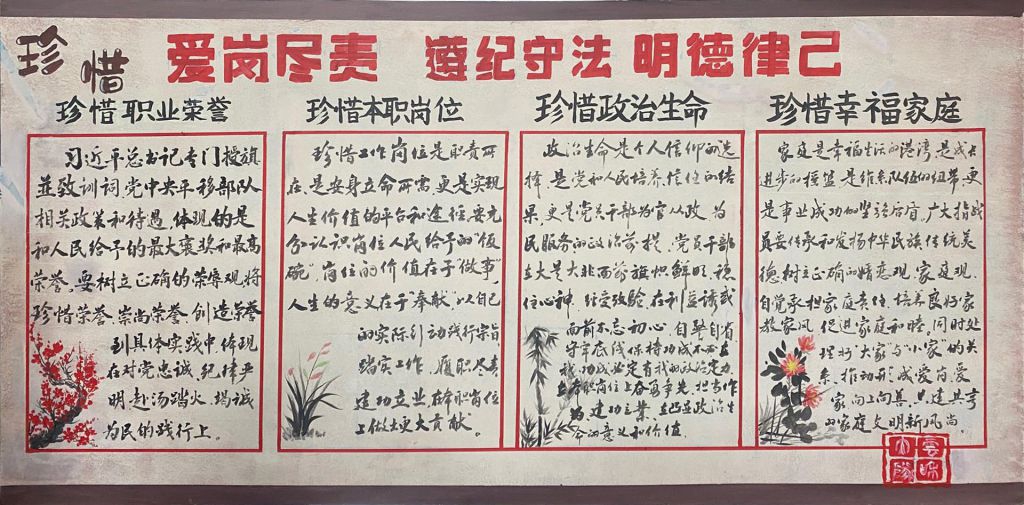 珍惜 爱岗尽责 遵纪守法 明德律己
珍惜职业荣誉
习近平总书记专门授旗
并致训词党中央平移部队
相关政策和待遇,体现的是
和人民给予的最大褒奖和最高
荣誉。要树立正确的荣辱观,将
珍惜荣誉、崇尚荣誉、创造荣誉
到具体实践中,体现
在对党忠诚,纪律严
明,赴汤蹈火,竭诚
为民的践行上。
珍惜本职岗位
珍惜工作岗位是职责所
在,是安身立命所需,更是实现
人生价值的平台和途径,要充
分认识岗位人民给予的"饭
碗",岗位的价值在于"做事",
人生的意义在于奉献"以自己
的实际行动践行宗旨
踏实工作,履职尽责
建功立业,在本职岗位
上做出更大贡献。
珍惜政治生命
政治生命是个人信仰的选
择,是党和人民培养、信任的结
果,更是党员干部为官从政、为
民服务的政治前提,党员干部
在大是大非面前旗帜鲜明,稳
住心神,经受考验,在利益诱惑
面前不忘初心,自警自省
守牢底线保持功成不必在
我,功成必定有我的政治定力
在本职岗位上奋勇争先,担当作
为,建功立业,
命的意义和价值.
珍惜幸福家庭
家庭是幸福生活的港湾,是成长
进步的摇篮,是维系队伍的纽带,更
是事业成功的坚强后盾,广大指战
员要传承和发扬中华民族传统美
德,树立正确的婚恋观、家庭观,
自觉承担家庭责任,培养良好家
教家风,促进家庭和睦,同时处
理好"大家"与"小家"的关
系,推动形成爱岗爱
家、向上向善、共建共享
的家庭文明新风尚。